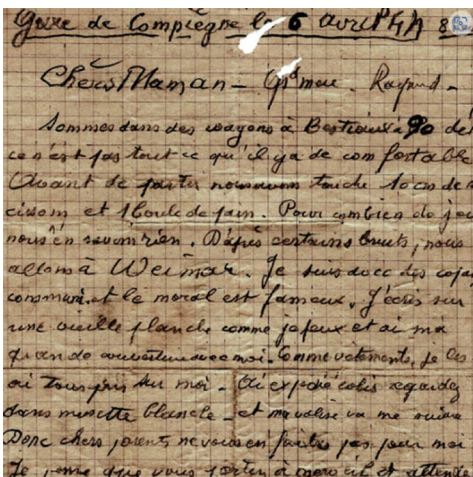 Gare de Compiègne le 6 avril 44 8
Chers Maman - Gd mère. Raymond -
Sommes dans des wagons à Bestiaux à 90 de
ce n'est pas tout ce qu'il y a de comfortable
Avant de partir nous avons touché 10 cm de
cisson et 1 boule de pain. Pour combien de jou
nous n'en savons rien. D'après certains bruits, nous
allons à Weimar. Je suis avec des copa
et le moral est fameux. J'écris sur
une vieille planche comme je peux et ai ma
grande couverture avec moi. Comme vêtements, je les
ai tous pris sur moi - Ai expédié colis regardez
dans musette blanche - et ma valise va me suivre
Donc chers parents ne vous en faites pas pour moi
Je pense que vous